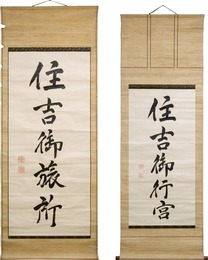 住吉御旅所
住吉御行宮